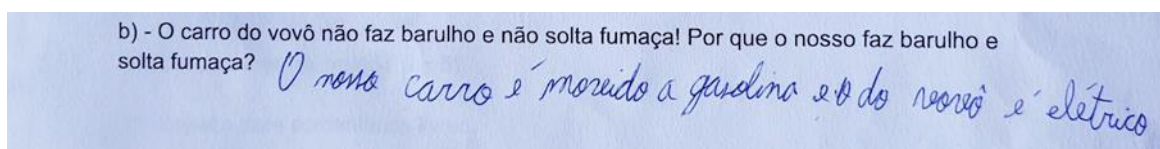 b) - O carro do vovô não faz barulho e não solta fumaça! Por que o nosso faz barulho e
solta fumaça? O nosso carro é movido a gasolina e o do vovô é elétrico